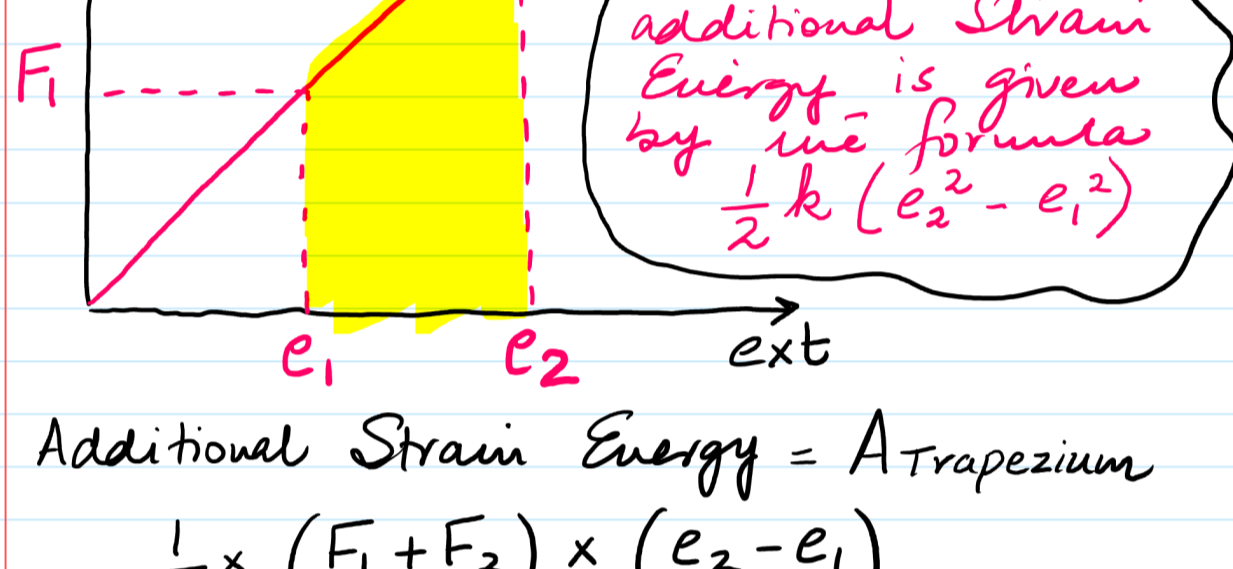 additional Strain
F₁
Energy is given
by the formula
½ k (e₂² - e₁²)
e₁
e₂
ext
Additional Strain Energy = A Trapezium
½ × (F₁ + F₂) × (e₂ - e₁)